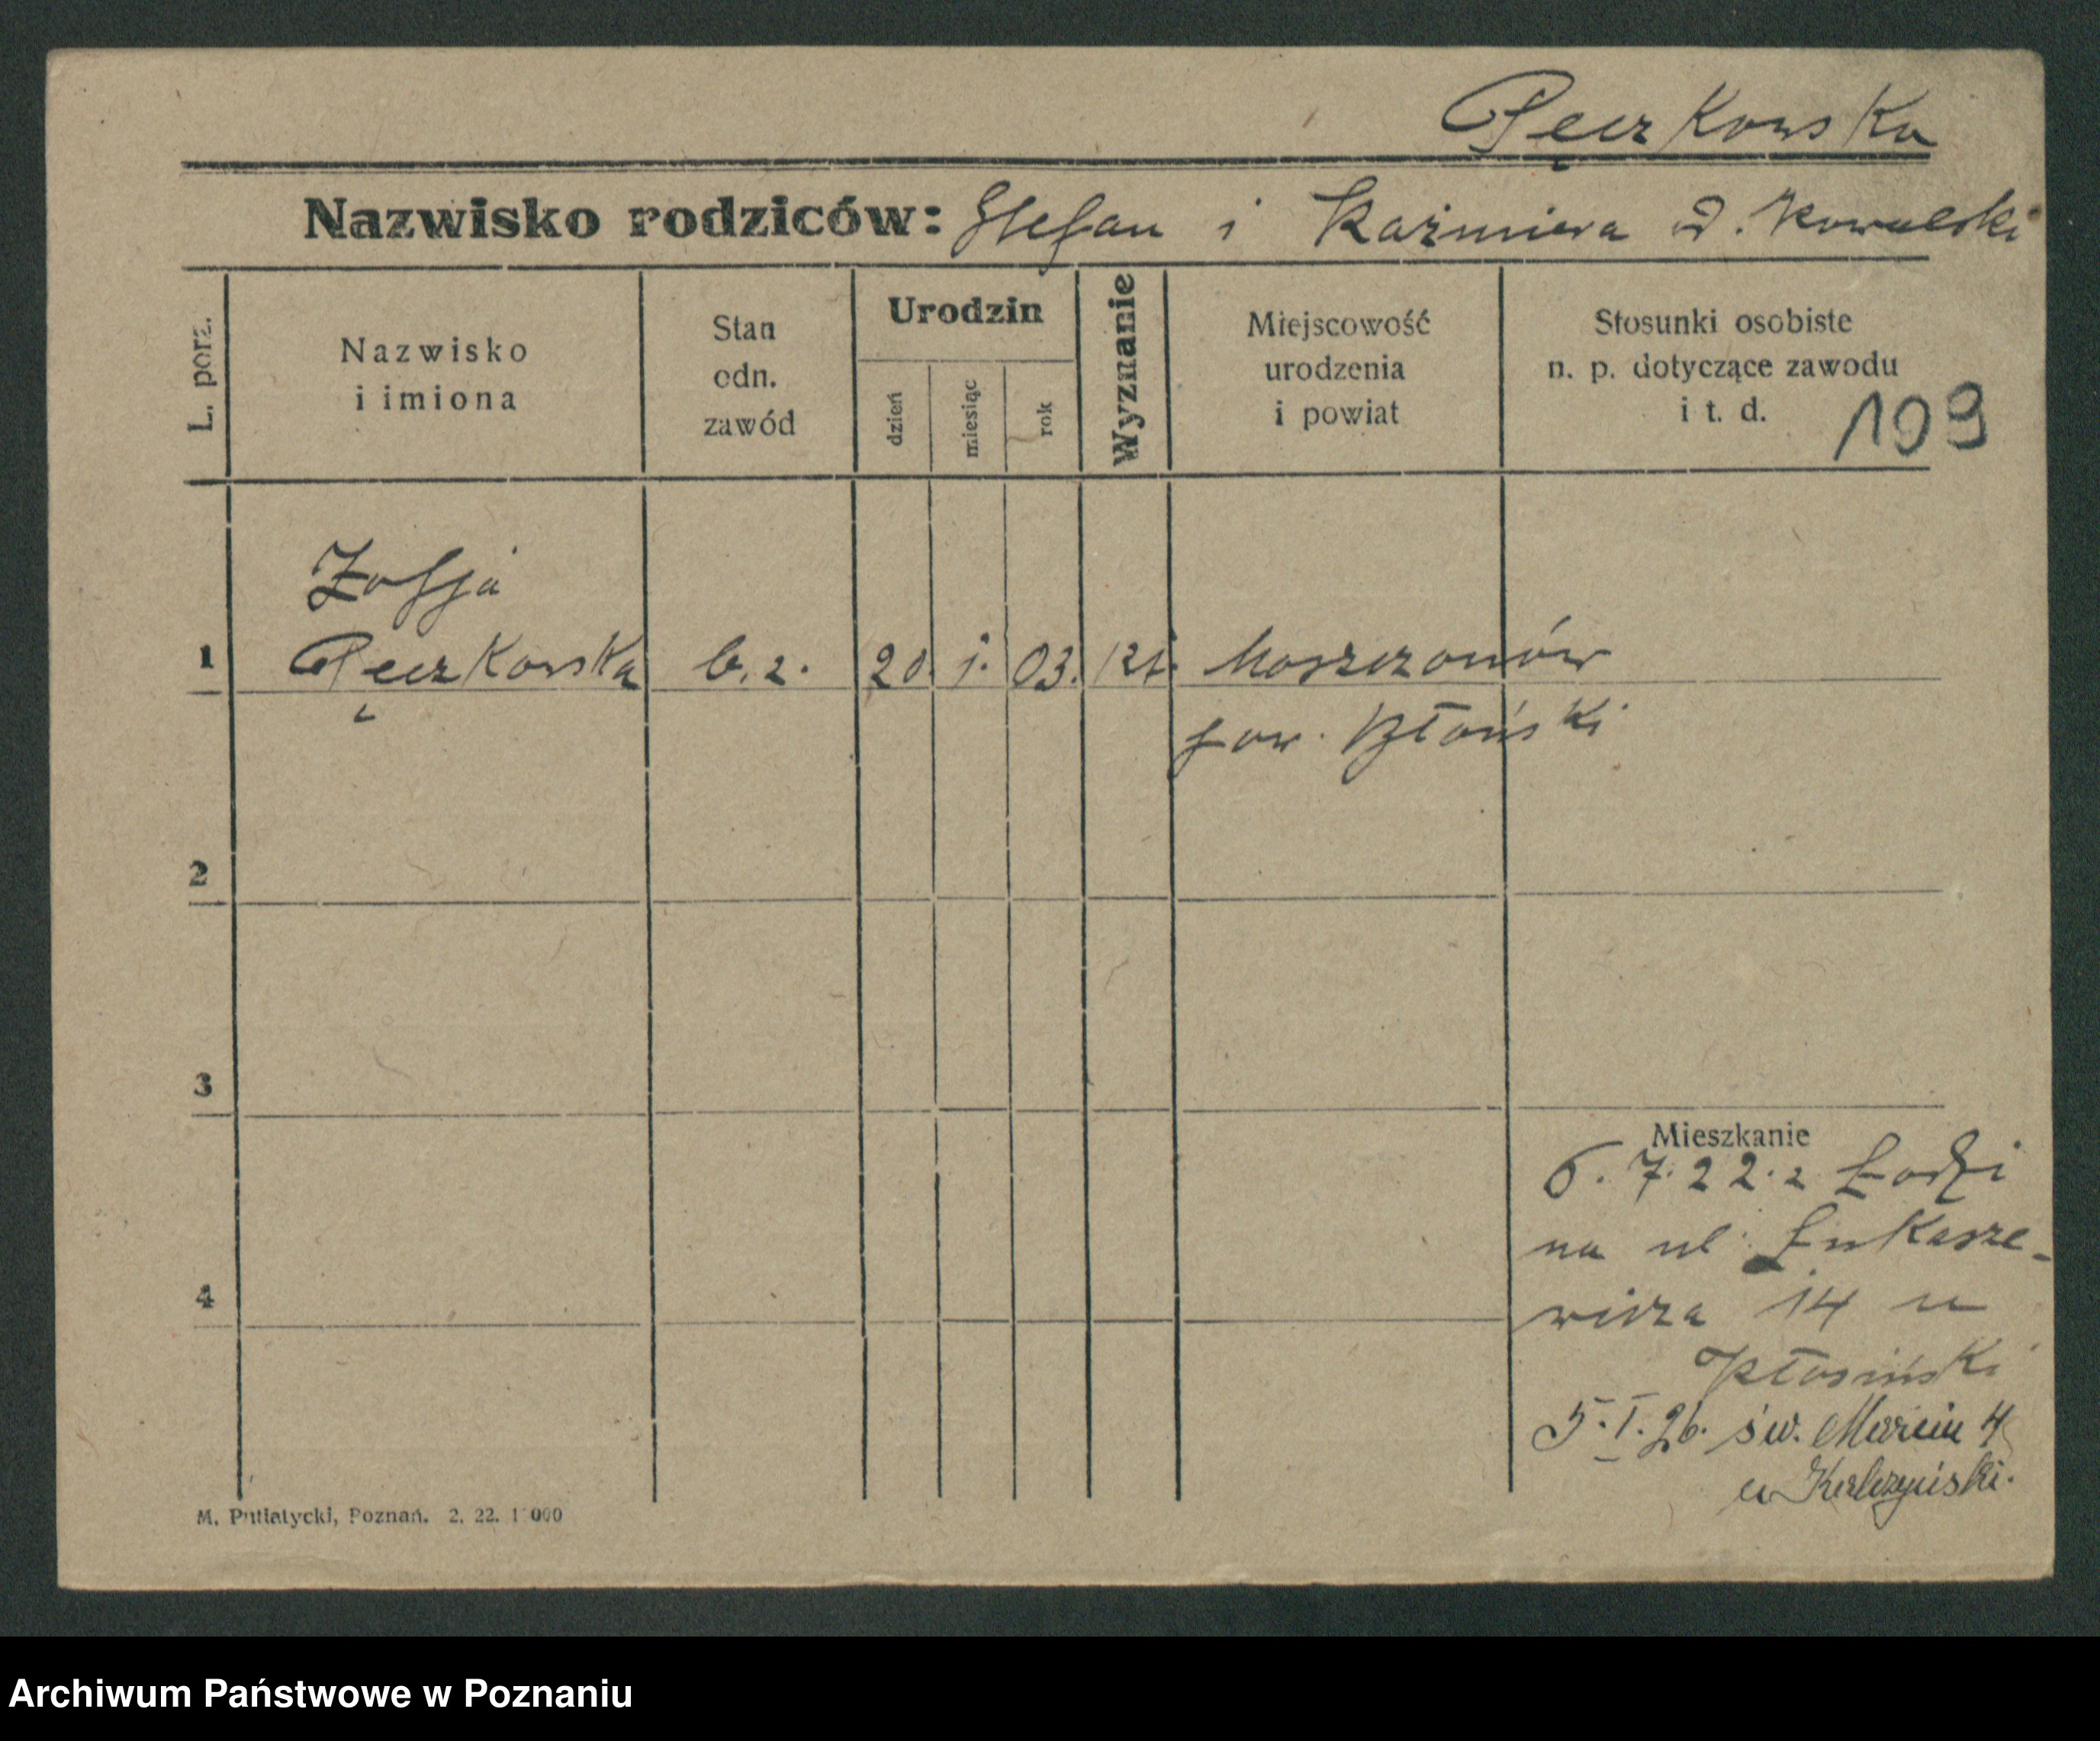 Pęczkowska
Nazwisko rodziców: Stefan i Kaźmiera d. Kowalski
L. porz.
Nazwisko
i imiona
Stan
odn.
zawód
Urodzin
dzień
miesiąc
rok
Wyznanie
Miejscowość
urodzenia
i powiat
Stosunki osobiste
n. p. dotyczące zawodu
i t. d.
109
Zofja
1 Pęczkowska b. z. 20. 1. 03. Moszczonów
pow. Błoński
2
3
4
Mieszkanie
6. 7. 22. z Łodzi
na ul. Łukasze-
wicza 14 u
5. I. 26. św. Marcin 4
M. Putiatycki, Poznań. 2. 22.
Archiwum Państwowe w Poznaniu